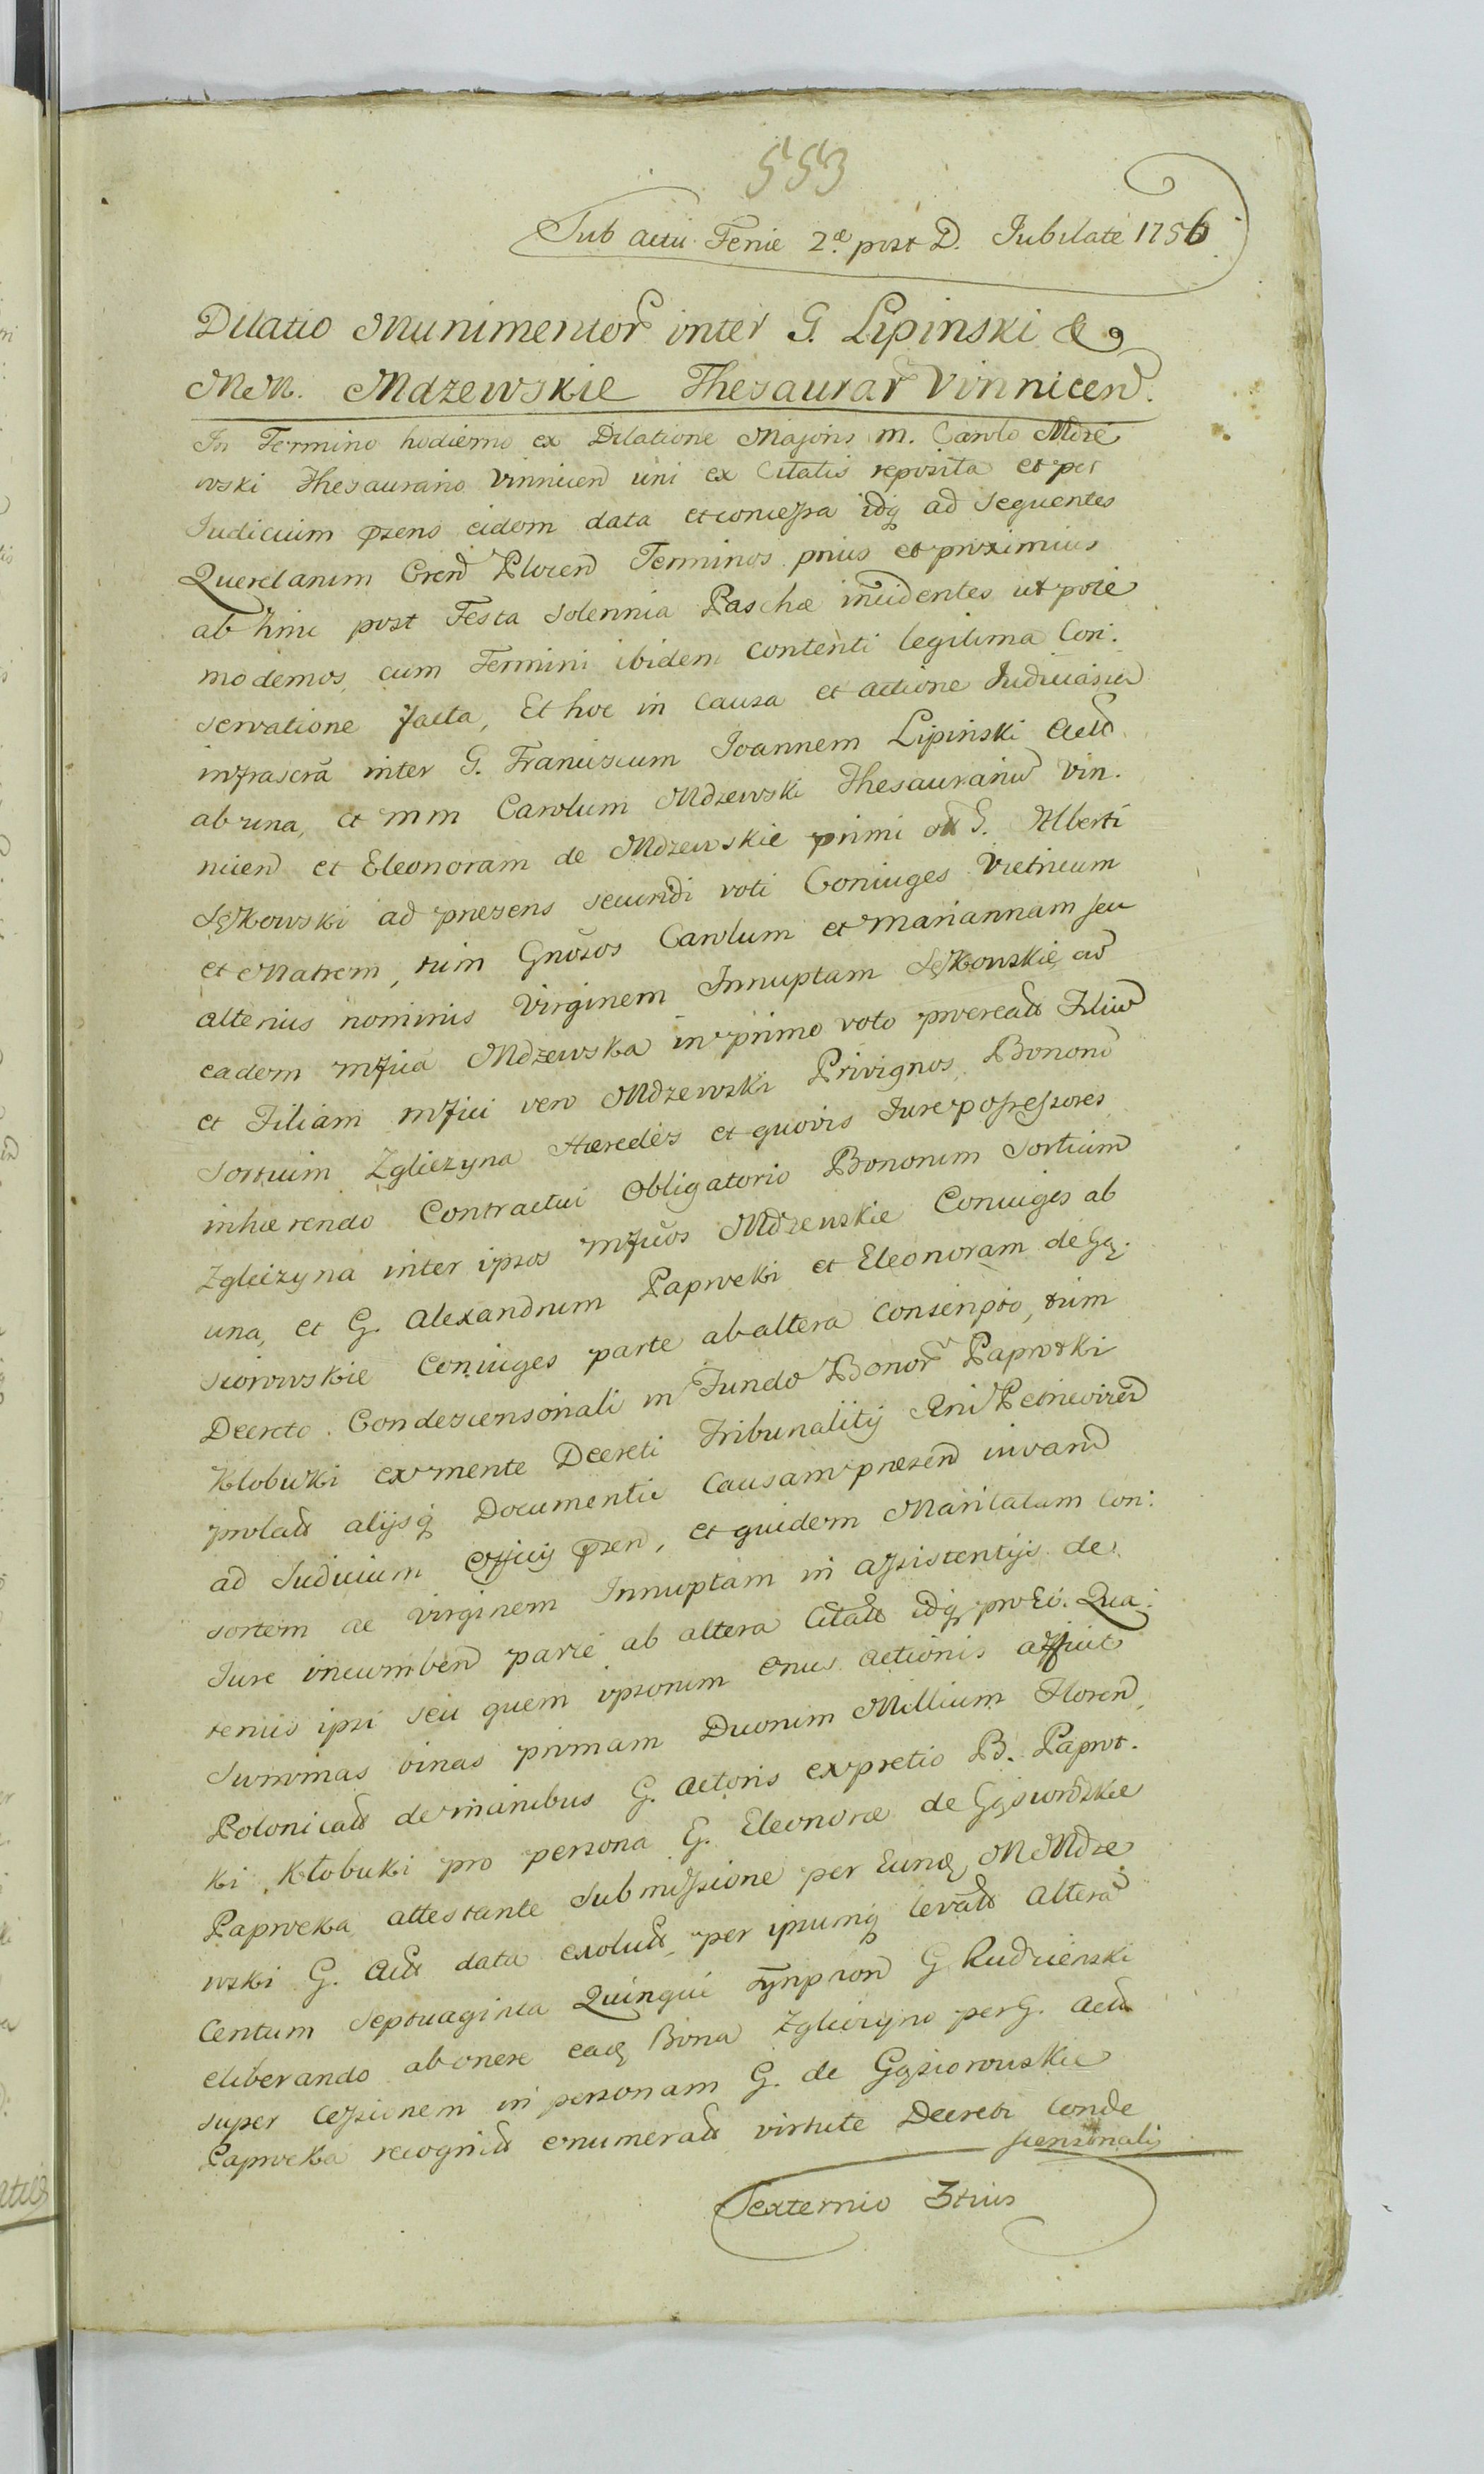 553
Sub actu Feriæ 2æ post D. Jubilate 1756
Dilatio Munimentor inter G. Lipinski &
MM. Mdzewskie Thesaurar Vinnicen.
In Termino hodierno ex Dilatione Majoris M. Carolo Mdze
wski Thesaurario Vinnicen uni ex Citatis reposita et per
Judicium pzens eidem data et concessa idq ad sequentes
Querelarum Cren Plocen Terminos prius et proximius
ab hinc post Festa Solennia Paschæ incidentes utpote
modernos, cum Termini ibidem contenti legitima Con:
servatione facta, Et hoc in Causa et actione Judiciarie
infrascra inter G. Franciscum Joannem Lipinski Act
ab una, et MM Carolum Mdzewski Thesaurariu Vin:
nicen et Eleonoram de Mdzewskie primi G. Alberti
Sękowski ad præsens secundi voti Coniuges Vitricum
et Matrem, tum Gnosos Carolum et Mariannam seu
alterius nominis Virginem Innuptam Sękowskie, cu
eadem mfica Mdzewska in primo voto procreat Filiu
et Filiam mfici vero Mdzewski Privignos, Bonor
Sortium Zgliczyna Hæredes et quovis Jure possessores
inhærendo Contractui Obligatorio Bonorum Sortium
Zgliczyna inter ipsos mficos Mdzewskie Coniuges ab
una, et G. Alexandrum Paprocki et Eleonoram de Gą:
siorowskie Coniuges parte ab altera conscripto, tum
Decreto Condescensoriali in Fundo Bonor Paprotki
Kłobuki ex mente Decreti Tribunalitij Rni Petricovien
prolat alijsq Documentis Causam præsen iuvan
ad Judicium Officij pzen, et quidem Maritatam Con:
sortem ac Virginem Innuptam in assistentijs de
Jure incumben parte ab altera Citat idq pro Eo. Qua:
tenus ipsi seu quem ipsorum onus actionis afficit
Summas binas primam Duorum Millium Floren
Polonicat de manibus G. Actoris ex pretio B. Paprot:
ki Kłobuki pro persona G. Eleonoræ de Gąsiorowskie
Paprocka attestante Submissione per Eund M Mdze
wski G. Act data exolut, per ipsumq levat altera
Centum Septuaginta Quinque Tynpron G Rudzienski
eliberando ab onere ead Bona Zgliczyno per G. Act
super Cessionem in personam G. de Gąsiorowskie
Paprocka recognit enumerat virtute Decreti Conde
scensorialis
Sexternio 3tius